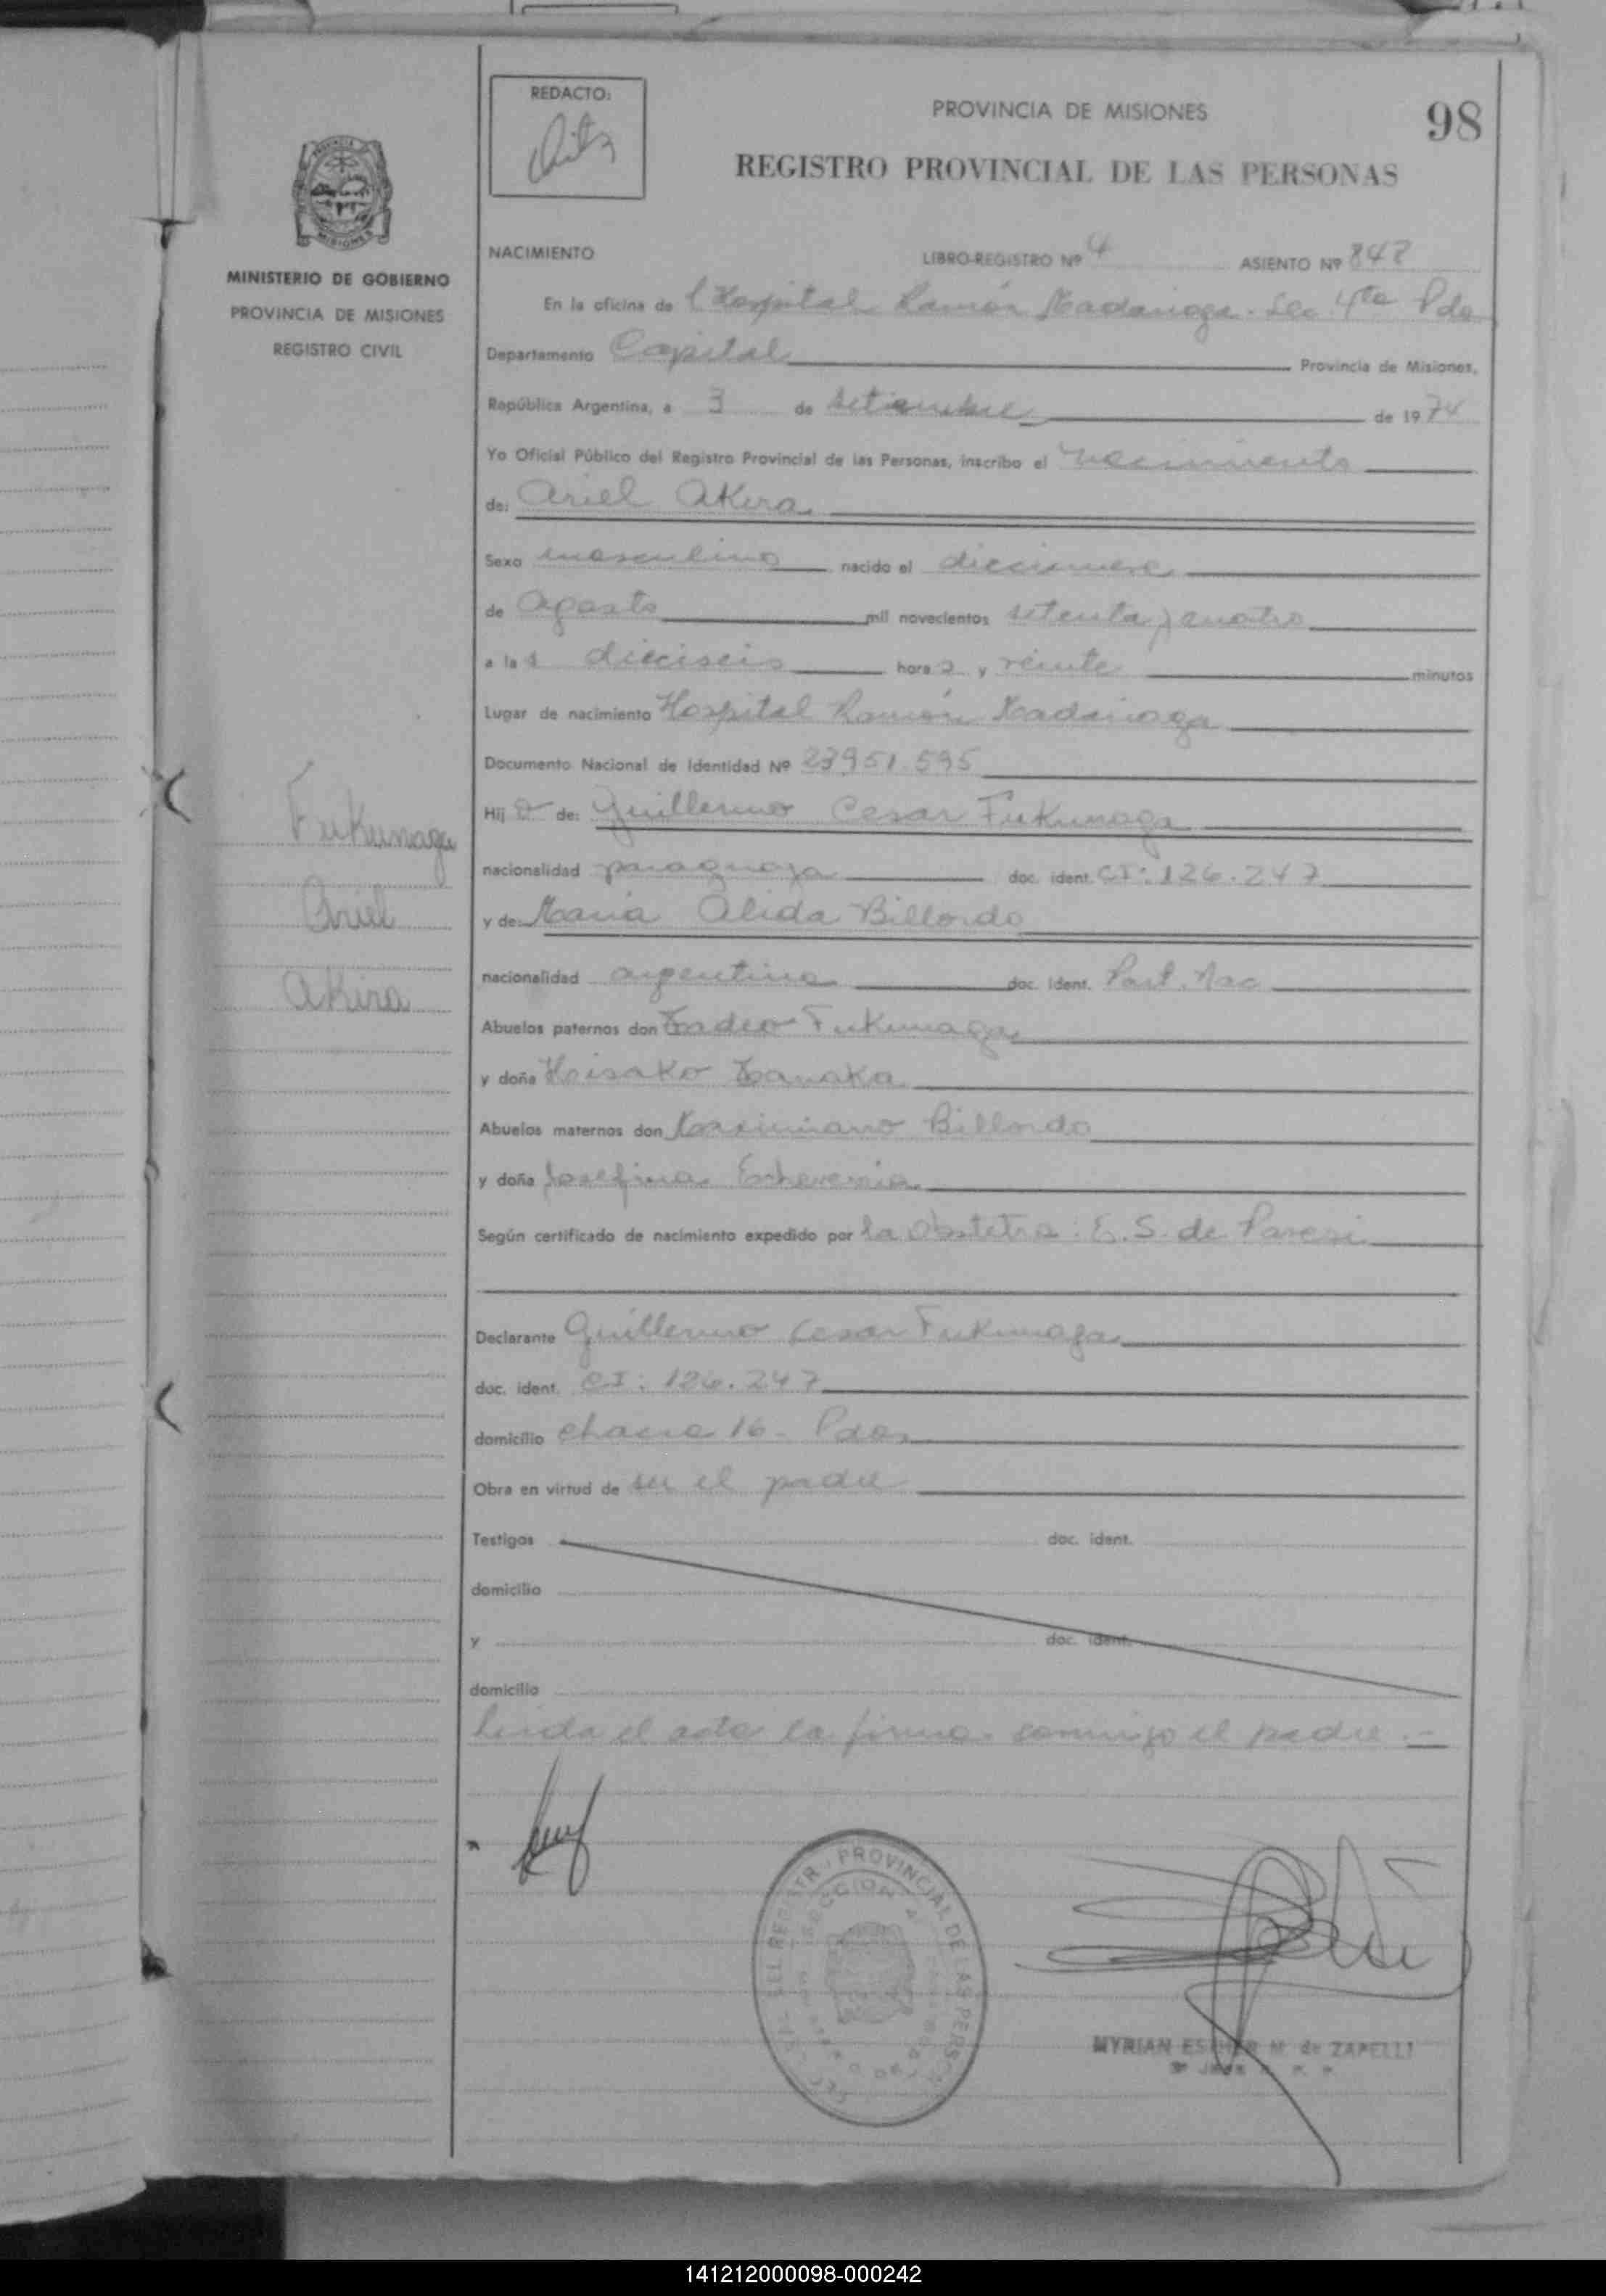 REDACTO:
PROVINCIA DE MISIONES
98
REGISTRO PROVINCIAL DE LAS PERSONAS
MISIONES
MINISTERIO DE GOBIERNO
PROVINCIA DE MISIONES
REGISTRO CIVIL
NACIMIENTO LIBRO-REGISTRO Nº 4 ASIENTO Nº 847
En la oficina de l Hospital Ramón Madariaga. Sec. 4ta Pdas
Departamento Capital Provincia de Misiones,
República Argentina, a 3 de setiembre de 1974
Yo Oficial Público del Registro Provincial de las Personas, inscribo el nacimiento
de: Ariel Akira
Sexo masculino nacido el diecinueve
de Agosto mil novecientos setenta y cuatro
a las dieciseis horas y veinte minutos
Lugar de nacimiento Hospital Ramón Madariaga
Documento Nacional de Identidad Nº 23951.595
Hijo de: Guillermo Cesar Fukunaga
nacionalidad paraguaya doc. ident. CI: 126.247
y de: Maria Alida Billordo
nacionalidad argentina doc. ident. Part. Nac
Abuelos paternos don Tadeo Fukunaga
y doña Hisako Tanaka
Abuelos maternos don Maximiano Billordo
y doña Josefina Echeverria
Según certificado de nacimiento expedido por la Obstetra: E. S. de Paresi
Declarante Guillermo Cesar Fukunaga
doc. ident. CI: 126.247
domicilio chacra 16 - Pdas
Obra en virtud de ser el padre
Testigos doc. ident.
domicilio
y doc. ident.
domicilio
Leida el acta la firma conmigo el padre.-
Fukunaga
Ariel
Akira
DEL REGISTR. PROVINCIAL DE LAS PERSONAS
SECCION 4
MYRIAN ESTHER M. de ZAPELLI
141212000098-000242